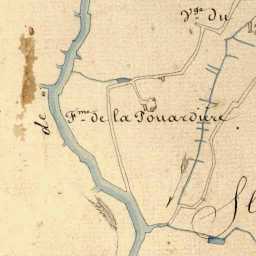 Vge. du
de
Fme. de la Pouardière